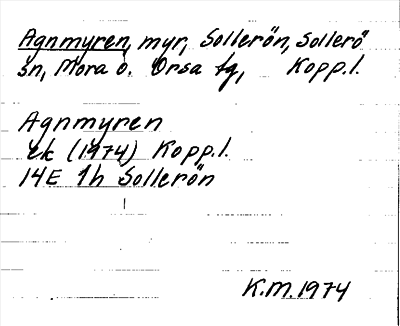 Agnmyren, myr, Sollerön, Sollerö
sn, Mora o. Orsa tg, Kopp.l.
Agnmyren
ek (1974) Kopp.l.
14E 1h Sollerön
K.M. 1974